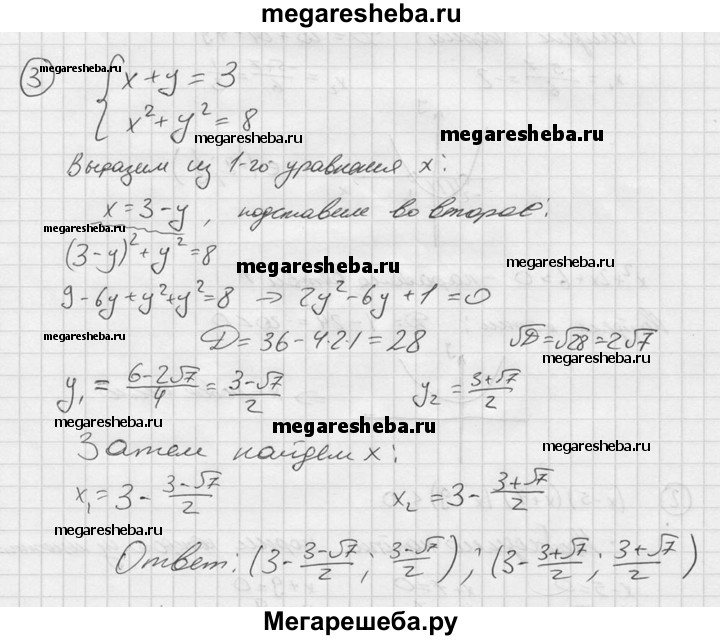 megaresheba.ru
③ { x + y = 3
x² + y² = 8
megaresheba.ru
megaresheba.ru
megaresheba.ru
Выразим из 1-го уравнения x:
x = 3 - y, подставим во второе:
megaresheba.ru
(3-y)² + y² = 8
megaresheba.ru
megaresheba.ru
9 - 6y + y² + y² = 8 → 2y² - 6y + 1 = 0
megaresheba.ru
D = 36 - 4·2·1 = 28 √D = √28 = 2√7
megaresheba.ru
y₁ = (6-2√7)/4 = (3-√7)/2 y₂ = (3+√7)/2
megaresheba.ru
megaresheba.ru
Затем найдем x:
megaresheba.ru
x₁ = 3 - (3-√7)/2 x₂ = 3 - (3+√7)/2
megaresheba.ru
Ответ: (3 - (3-√7)/2 ; (3-√7)/2) ; (3 - (3+√7)/2 ; (3+√7)/2)
megaresheba.ru
Мегарешеба.ру